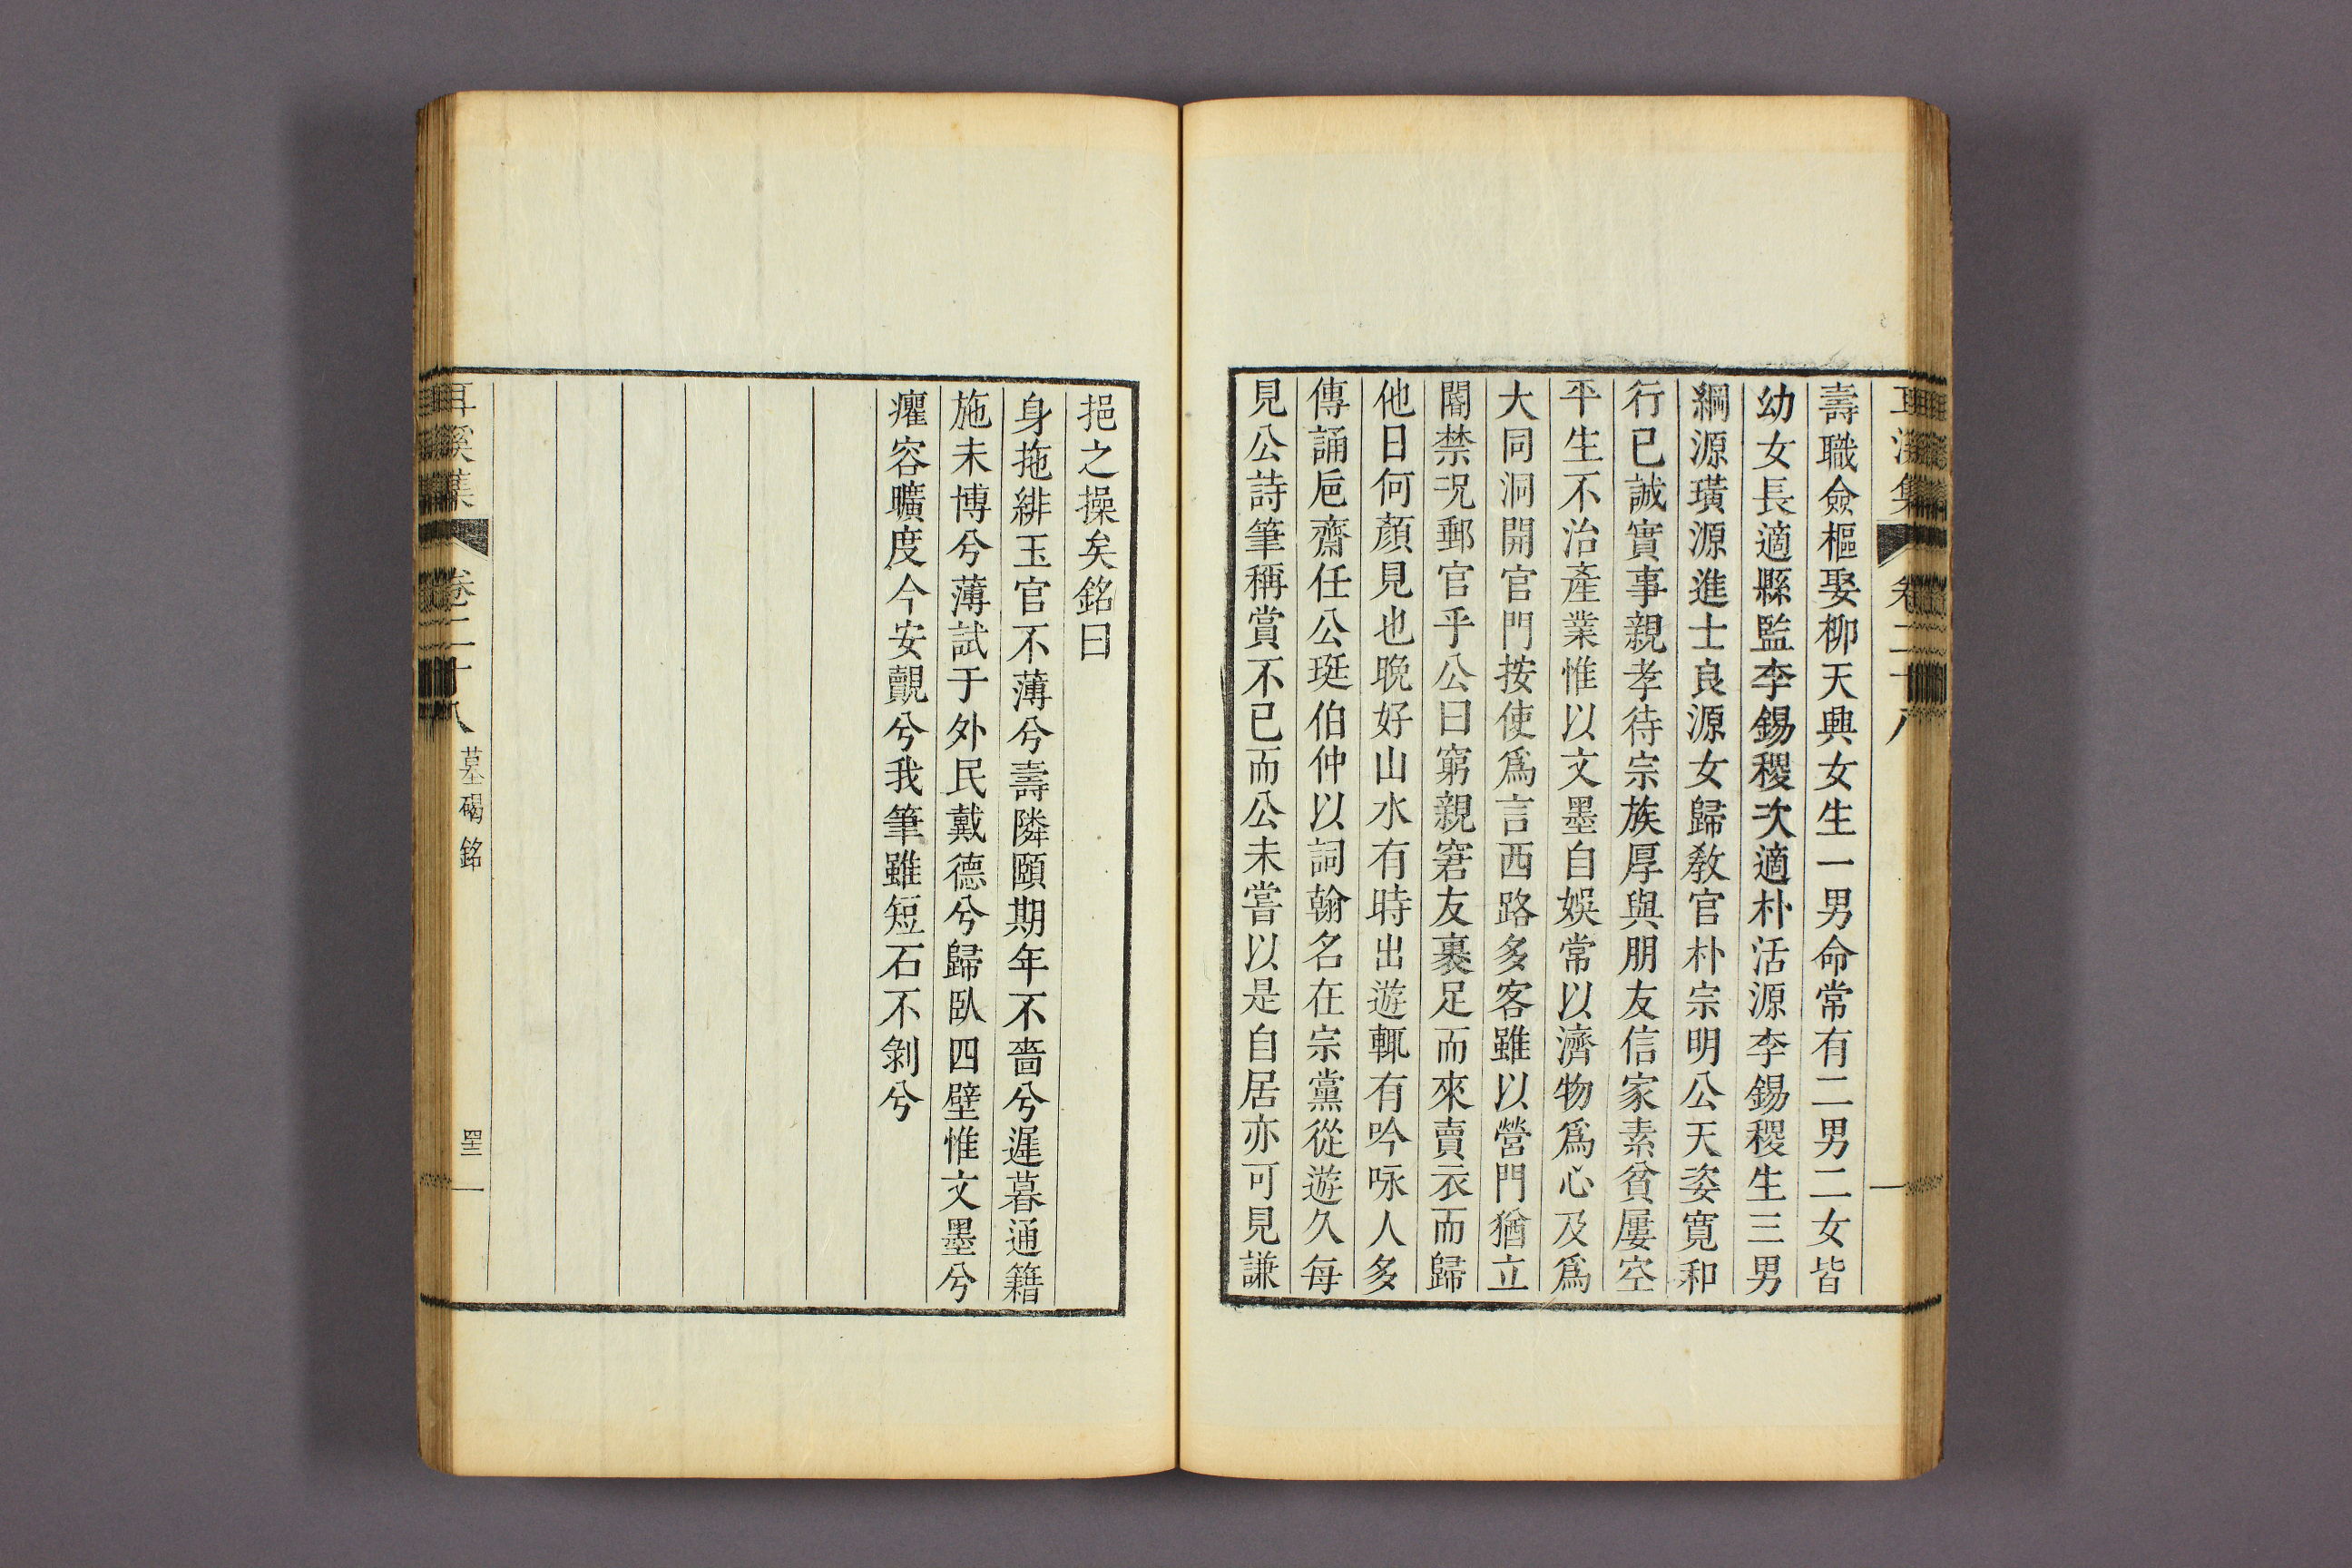 壽職僉樞娶柳天興女生一男命常有二男二女皆
幼女長適縣監李錫稷次適朴活源李錫稷生三男
綱源璜源進士良源女歸教官朴宗明公天姿寬和
行已誠實事親孝待宗族厚與朋友信家素貧屢空
平生不治產業惟以文墨自娛常以濟物爲心及爲
大同洞開官門按使爲言西路多客雖以營門猶立
閽禁况郵官乎公曰窮親窘友裹足而來賣衣而歸
他日何顏見也晩好山水有時出遊輒有吟咏人多
傳誦巵齋任公珽伯仲以詞翰名在宗黨從遊久每
見公詩筆稱賞不已而公未嘗以是自居亦可見謙
挹之操矣銘曰
身拖緋玉官不薄兮壽隣頤期年不嗇兮遲暮通籍
施未博兮薄試于外民戴德兮歸臥四壁惟文墨兮
癯容曠度今安覿兮我筆雖短石不剝兮
耳溪集 卷二十八 墓碣銘 四三